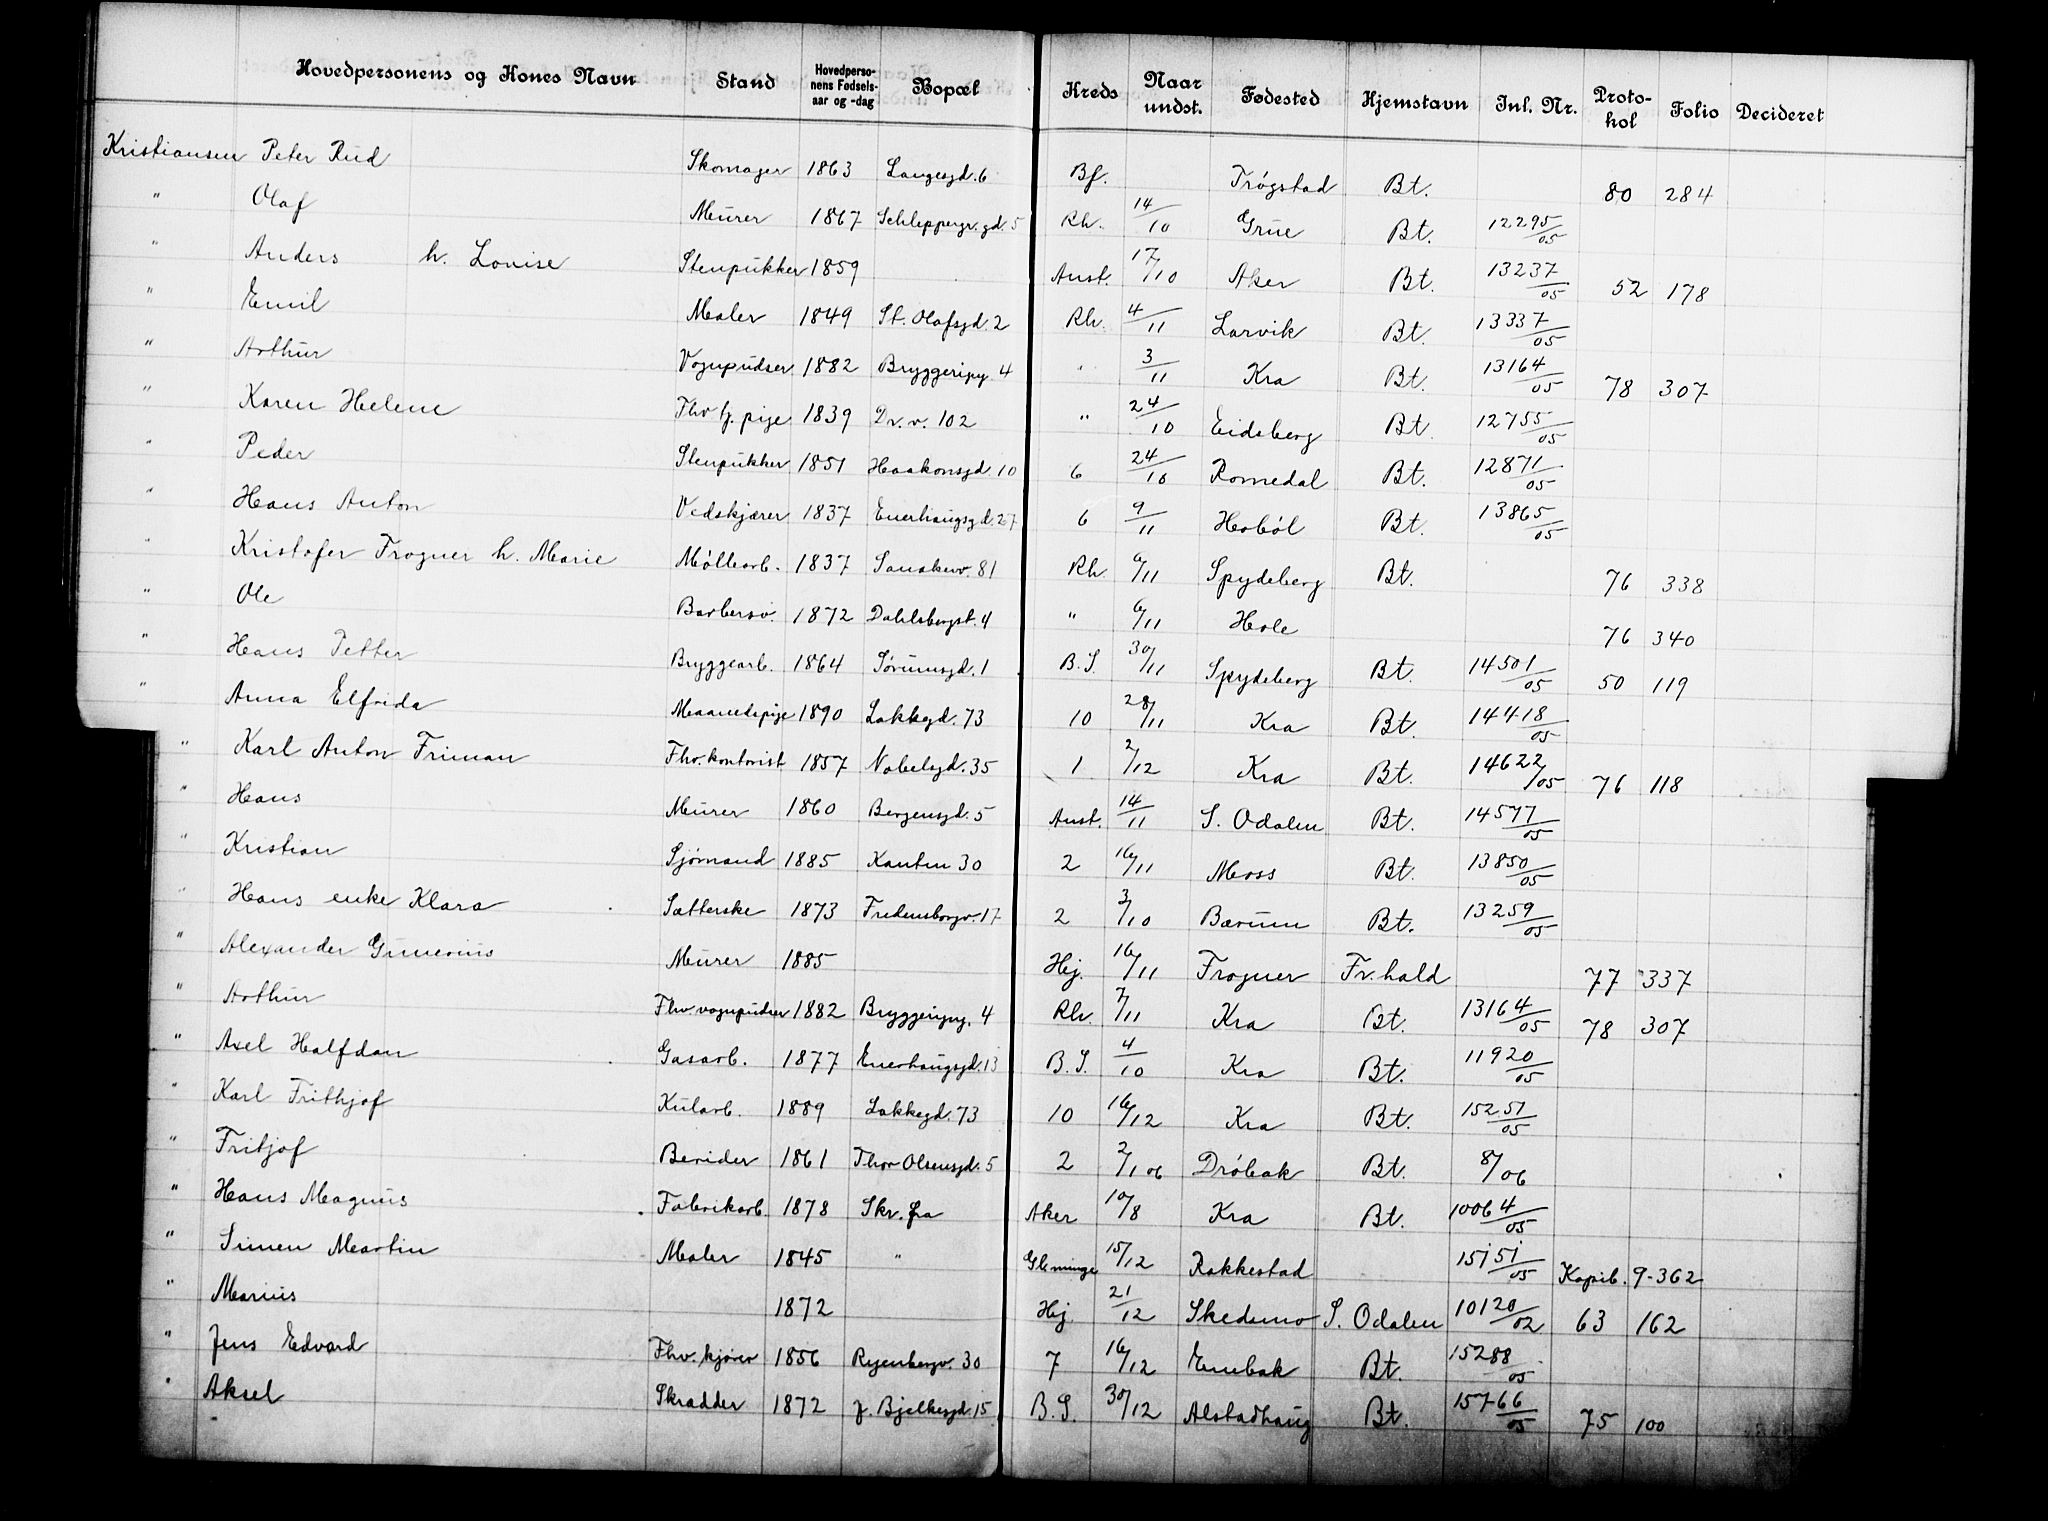 Hovedpersonens og Kones Navn Stand Hovedpersonens Fødselsaar og -dag Bopæl Kreds Naar undst. Fødested Hjemstavn Inl. Nr. Protokol Folio Decideret
Kristiansen Peter Rud Skomager 1863 Langesgd. 6 Bf. Trøgstad Bt. 80 284
" Olaf Murer 1867 Schleppegr.gd. 5 Rh. 14/10 Grue Bt. 12295/05
" Anders h. Lovise Stenpukker 1859 Anst. 17/10 Aker Bt. 13237/05 52 178
" Emil Maler 1849 St. Olafsgd. 2 Rh. 4/11 Larvik Bt. 13337/05
" Arthur Vognpudser 1882 Bryggerigg. 4 " 3/11 Kra Bt. 13164/05 78 307
" Karen Helene Fhv tj. pige 1839 Dr.v. 102 " 24/10 Eidsberg Bt. 12755/05
" Peder Stenpukker 1851 Haakonsgd. 10 6 24/10 Romedal Bt. 12871/05
" Hans Anton Vedskjærer 1837 Enerhaugsgd. 27 6 9/11 Hobøl Bt. 13865/05
" Kristofer Frogner h. Marie Møllearb. 1837 Sanakerv. 81 Rh. 6/11 Spydeberg Bt. 76 338
" Ole Barbersv. 1872 Dahlsbergst. 4 " 6/11 Hole 76 340
" Hans Petter Bryggearb. 1864 Sørumsgd. 1 B.S. 30/11 Spydeberg Bt. 14501/05 50 119
" Anna Elfrida Maanedspige 1890 Lakkegd. 73 10 28/11 Kra Bt. 14418/05
" Karl Anton Friman Fhv. kontorist 1857 Nobelsgd. 35 1 2/12 Kra Bt. 14622/05 76 118
" Hans Murer 1860 Bergensgd. 5 Anst. 14/11 S. Odalen Bt. 14577/05
" Kristian Sjømand 1885 Kanten 30 2 16/11 Moss Bt. 13850/05
" Hans enke Klara Sætterske 1873 Fredensborgv. 17 2 3/10 Bærum Bt. 13259/05
" Alexander Gunerius Murer 1885 Hej. 16/11 Frogner Fr.hald 77 337
" Arthur Fhv vognpudser 1882 Bryggerigg. 4 Rh. 7/11 Kra Bt. 13164/05 78 307
" Axel Halfdan Gasarb. 1877 Enerhaugsgd. 13 B.S. 4/10 Kra Bt. 11920/05
" Karl Frithjof Kularb. 1889 Lakkegd. 73 10 16/12 Kra Bt. 15251/05
" Fritjof Berider 1861 Thor Olsensgd. 5 2 2/1 06 Drøbak Bt. 8/06
" Hans Magnus Fabrikarb. 1878 Skr. fra Aker 10/8 Kra Bt. 10064/05
" Simen Martin Maler 1845 " Glemminge 15/12 Rakkestad 15151/05 Kopib. 9-362
" Marius 1872 Hej. 21/12 Skedsmo S. Odalen 10120/02 63 162
" Jens Edvard Fhv. kjører 1856 Ryenbergv. 30 7 16/12 Enebak Bt. 15288/05
" Aksel Skrædder 1872 J. Bjelkesgd. 15 B.S. 30/12 Alstadhaug Bt. 15766/05 75 100